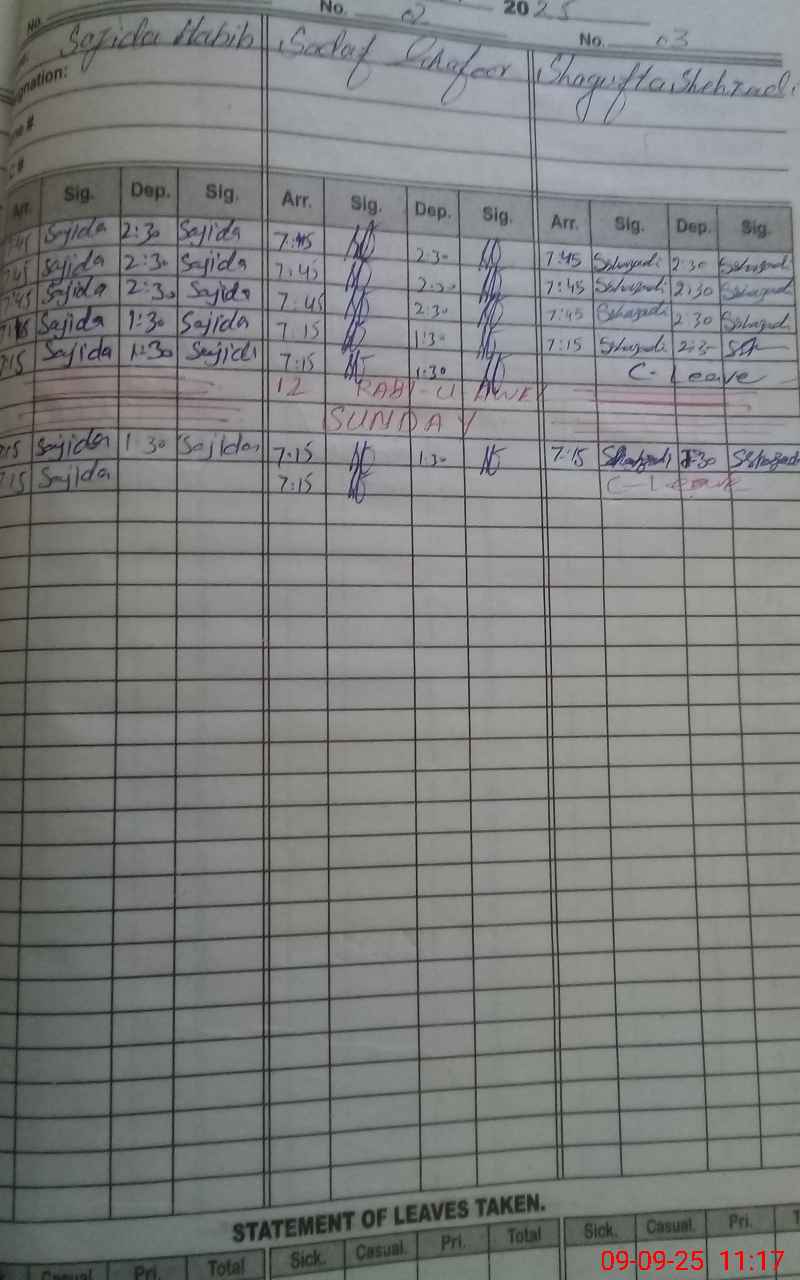 No. No. 02 2025 No. 03
Sajida Habib Sadaf Ghafoor Shagufta Shehzadi
gnation:
Arr. Sig. Dep. Sig. Arr. Sig. Dep. Sig. Arr. Sig. Dep. Sig.
7:45 Sajida 2:30 Sajida 7:45 2:30 7:45 Sshazadi 2:30 Sshazadi
7:45 Sajida 2:30 Sajida 7:45 2:30 7:45 Sshazadi 2:30 Sshazadi
7:45 Sajida 2:30 Sajida 7:45 2:30 7:45 Sshazadi 2:30 Sshazadi
7:15 Sajida 1:30 Sajida 7:15 1:30 7:15 Sshazadi 2:30
7:15 Sajida 1:30 Sajida 7:15 1:30 C-Leave
12 RABI-U
SUNDAY
7:15 Sajida 1:30 Sajida 7:15 1:30 7:15 Shazadi 1:30 Sshazadi
7:15 Sajida 7:15 C-Leave
STATEMENT OF LEAVES TAKEN.
Casual Pri. Total Sick. Casual. Pri. Total Sick. Casual. Pri. T
09-09-25 11:17